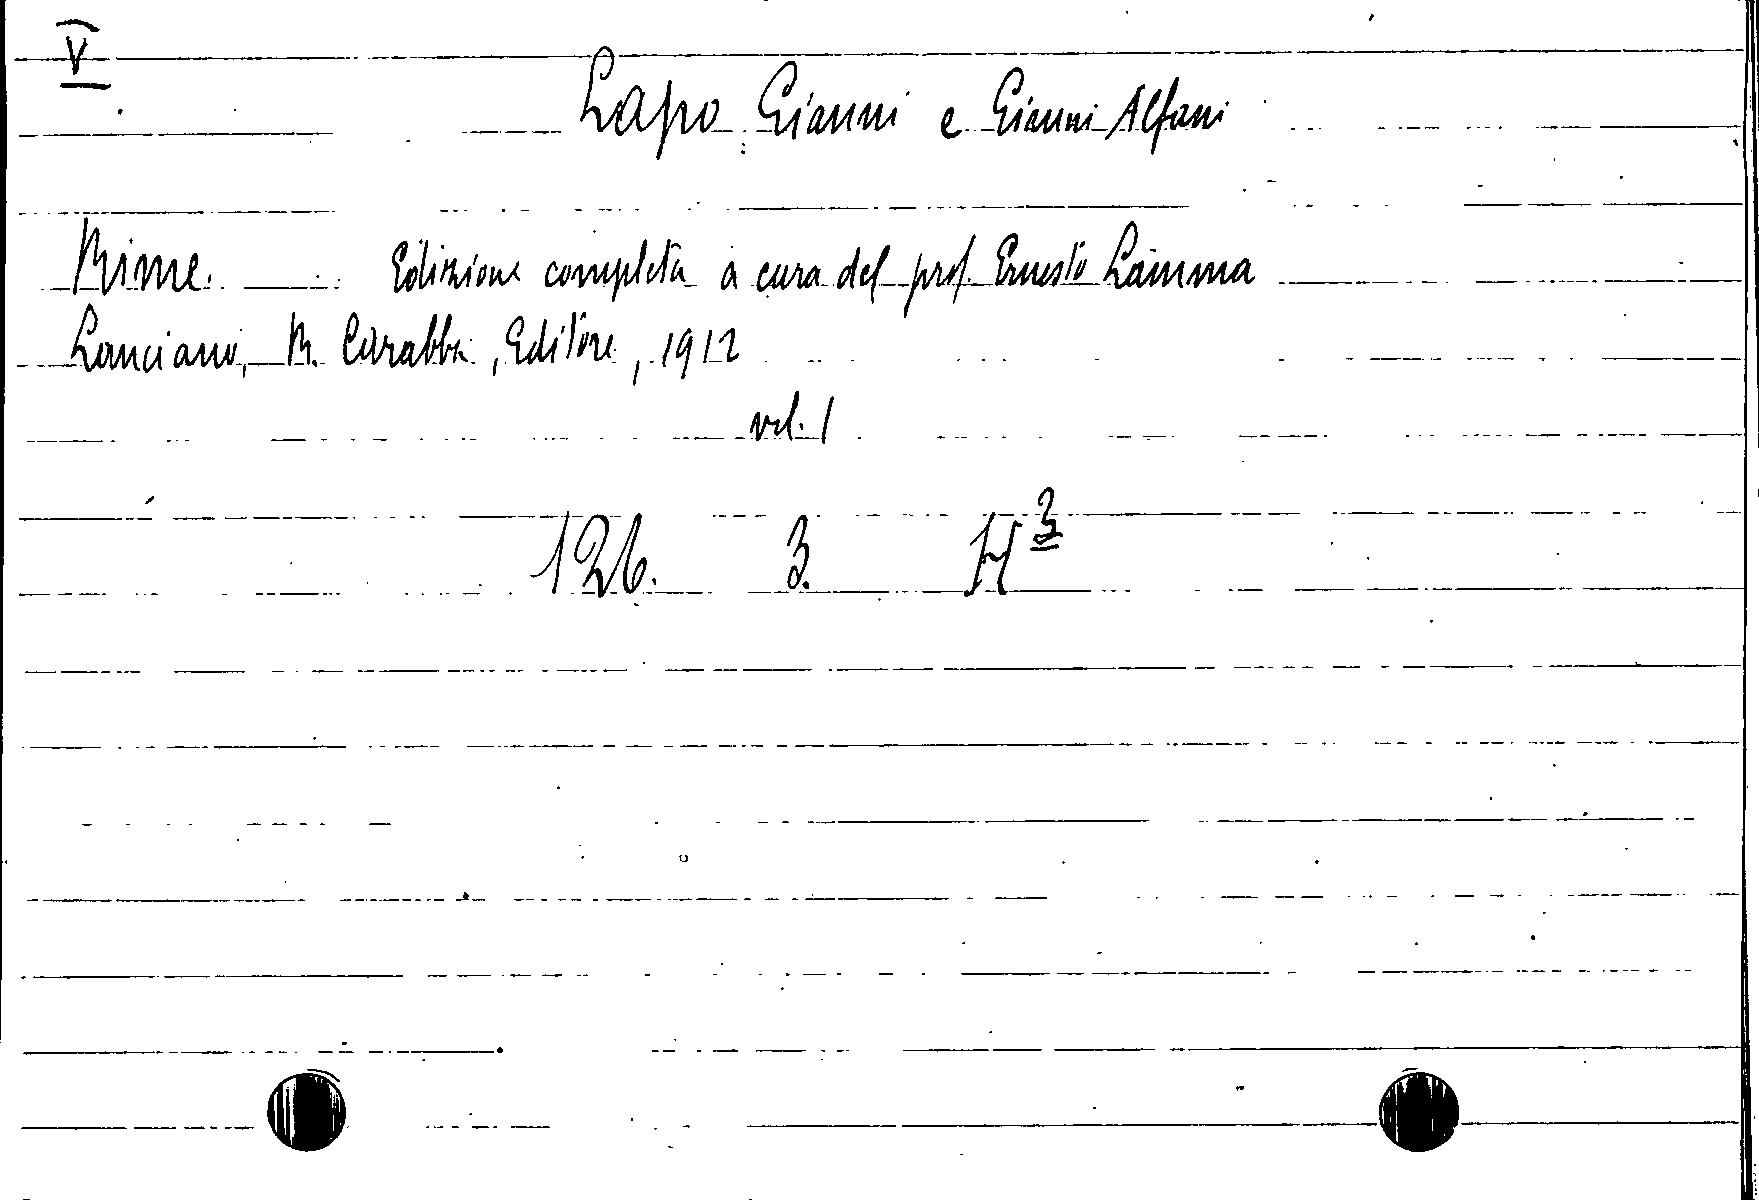 V
Lapo Gianni e Gianni Alfani
Rime. Edizione completa a cura del prof. Ernesto Lamma
Lanciano, R. Carabba, Editore, 1912
vol. 1
126. 3. H 3